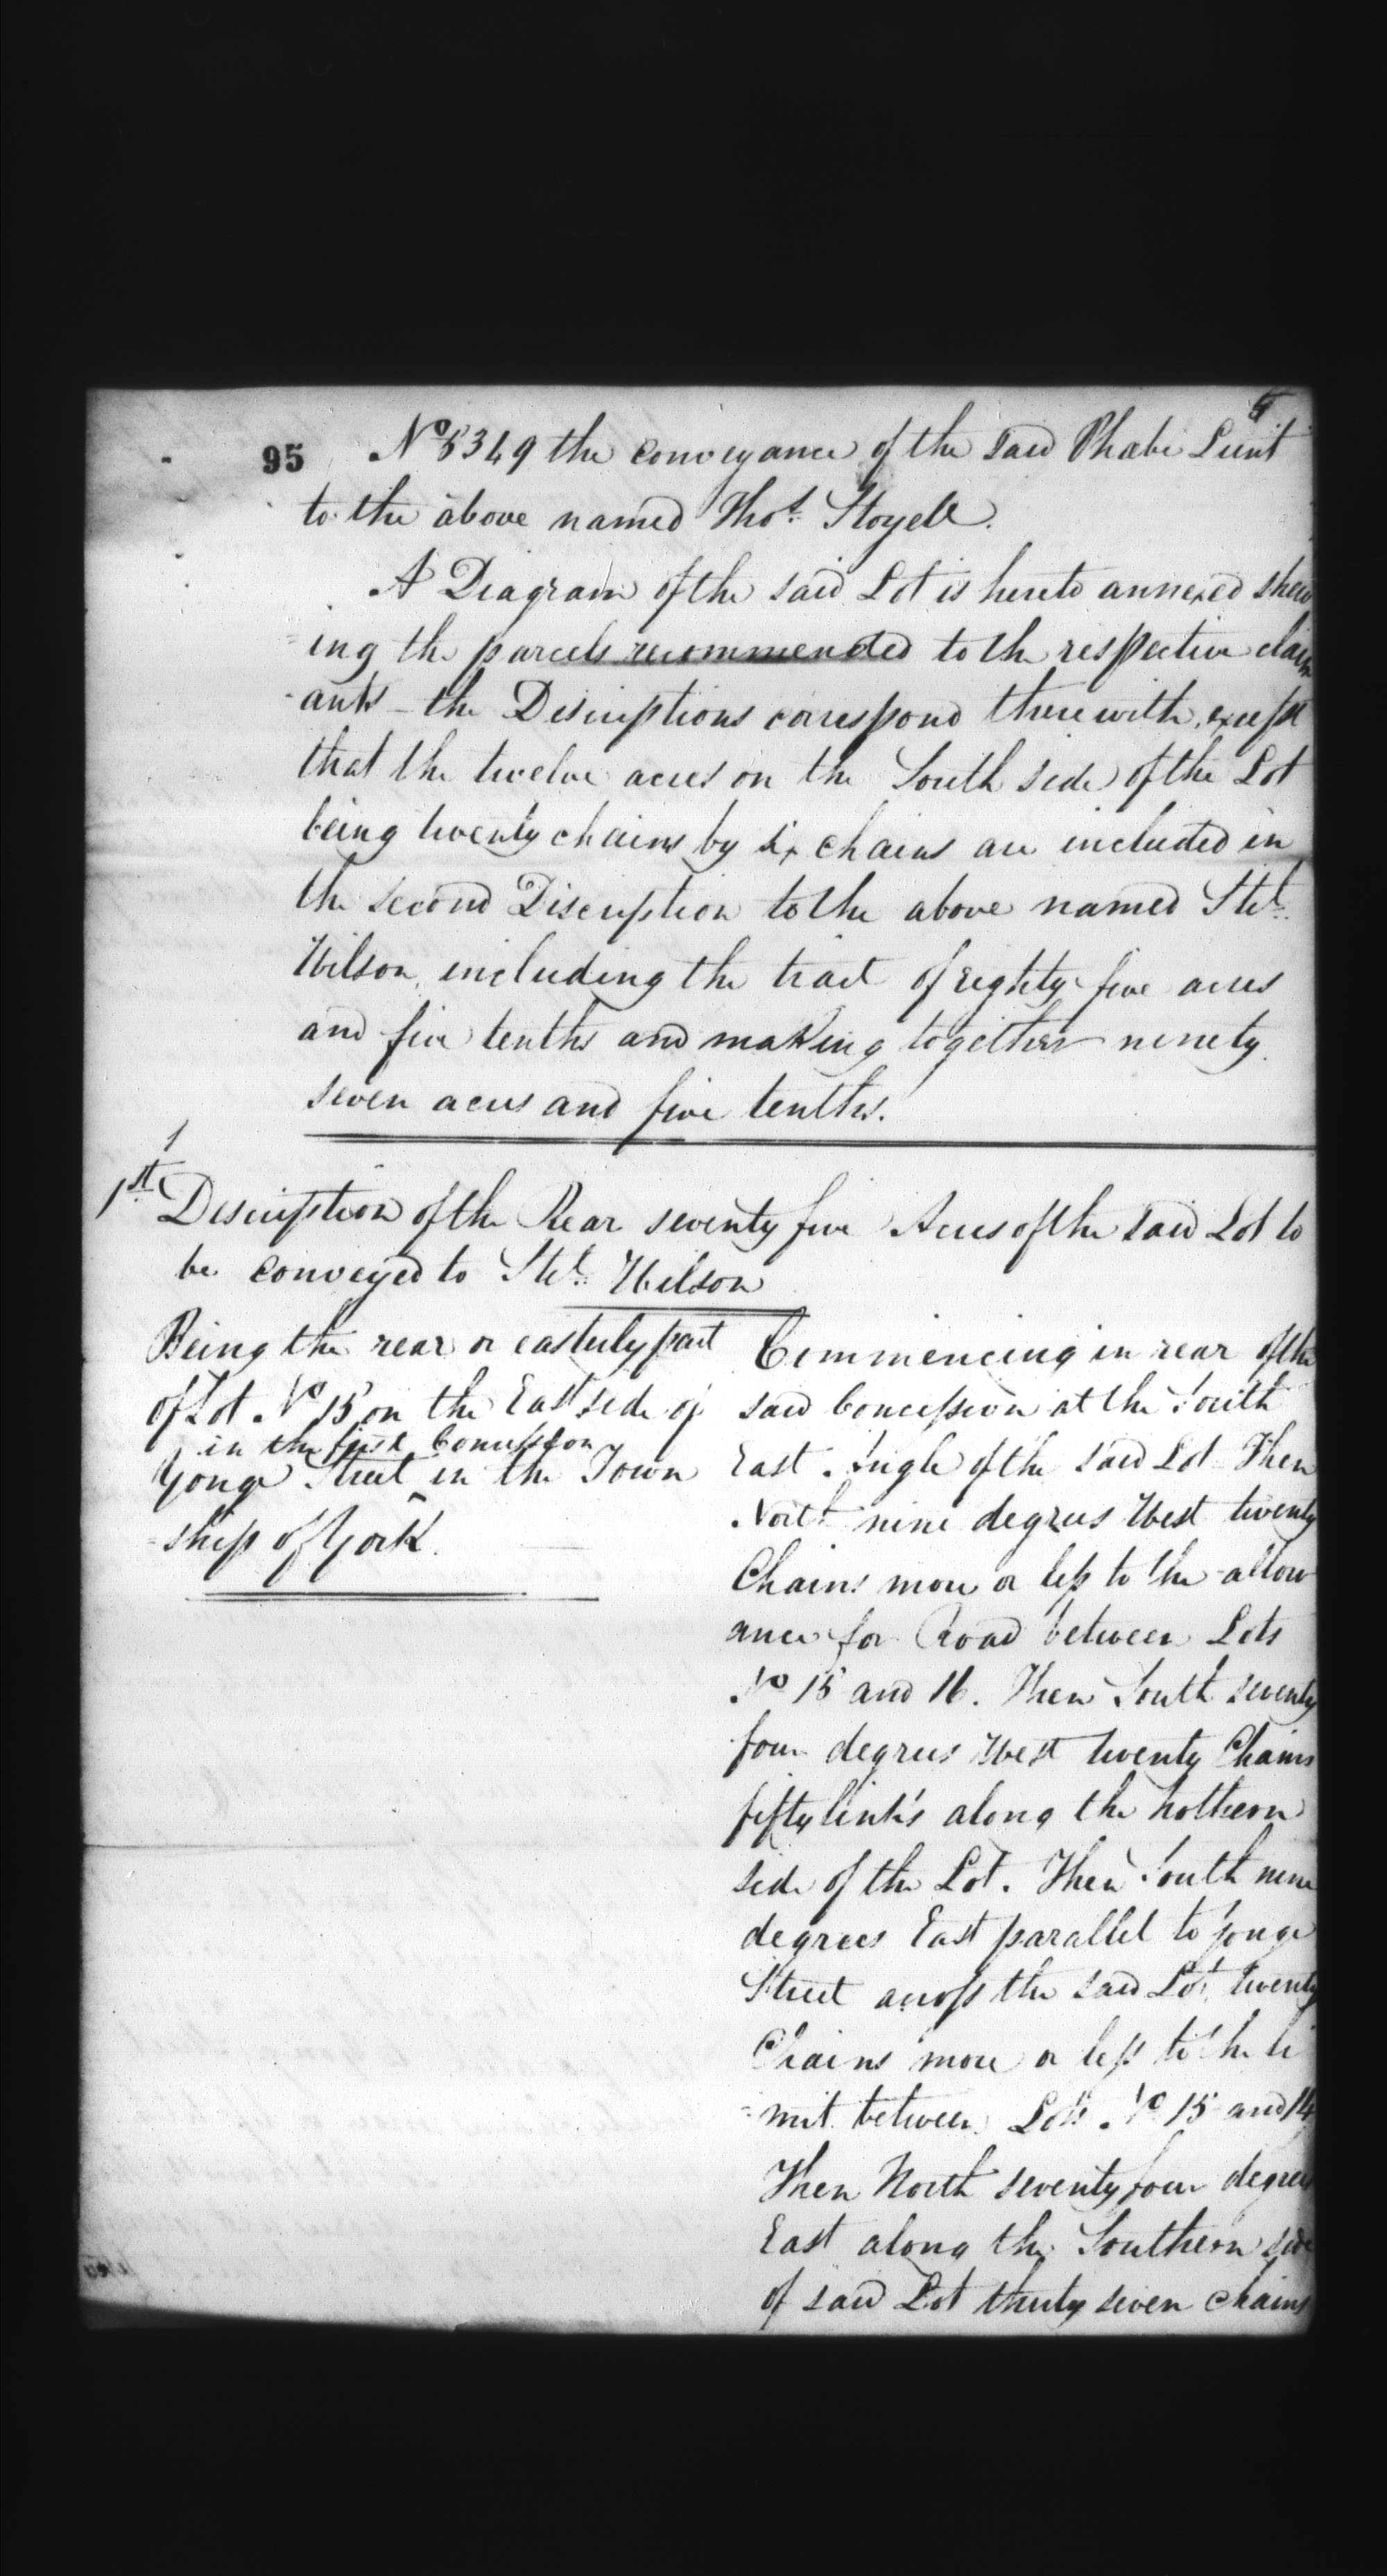 95
No 8349 the conveyance of the said Phabe Lunt
to the above named Thos. Stoyell.
A Diagram of the said Lot is hereto annexed shew
ing the parcels recommended to the respective claim
-ants - the Descriptions correspond therewith, except
that the twelve acres on the South side of the Lot
being twenty chains by six chains are included in
the second Discription to the above named Stil.
Wilson, including the tract of eighty five acres
and five tenths and making together ninety
seven acres and five tenths.
1
1st Description of the Rear seventy five Acres of the said Lot to
be conveyed to Stil. Wilson
Being the rear or easterly part
of Lot No 15 on the East side of
in the first Concession
Yonge Street in the Town
-ship of York.
Commencing in rear of the
said Concession at the South
East Angle of the said Lot Then
North nine degrees West twenty
Chains more or less to the allow
ance for Road between Lots
No 15 and 16. Then South seventy
four degrees West twenty Chains
fifty link's along the nothern
side of the Lot. Then South nine
degrees East parallel to Yonge
Street across the said Lot twenty
Chains more or less to the li
-mit between Lots No 15 and 14
Then North seventy four degrees
East along the Southern side
of said Lot thirty seven chains